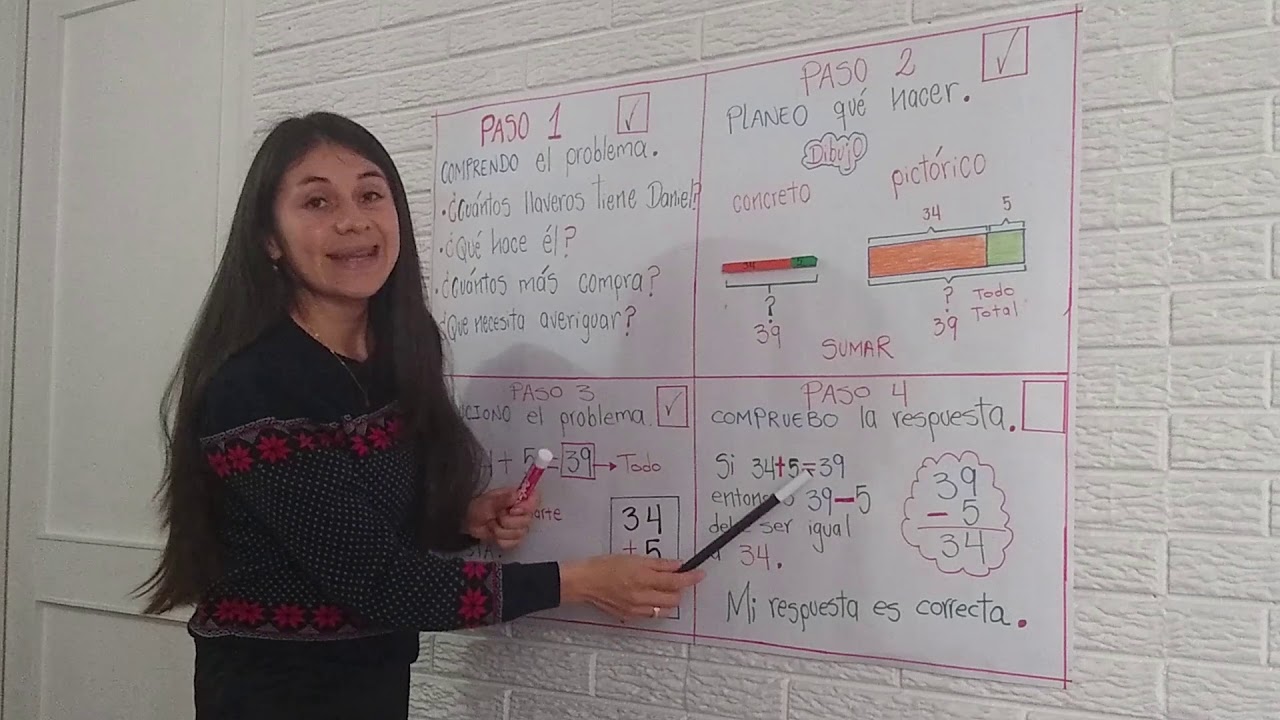 PASO 1
COMPRENDO el problema.
• ¿Cuántos llaveros tiene Daniel?
• ¿Qué hace él?
• ¿Cuántos más compra?
¿Que necesita averiguar?
PASO 2
PLANEO qué hacer.
Dibujo
concreto
pictórico
34 5
34
?
39
?
39
Todo
Total
SUMAR
PASO 3
el problema.
+ 5 = 39 → Todo
34
+ 5
PASO 4
COMPRUEBO la respuesta.
Si 34+5=39
39-5
ser igual
34.
39
- 5
34
Mi respuesta es correcta.